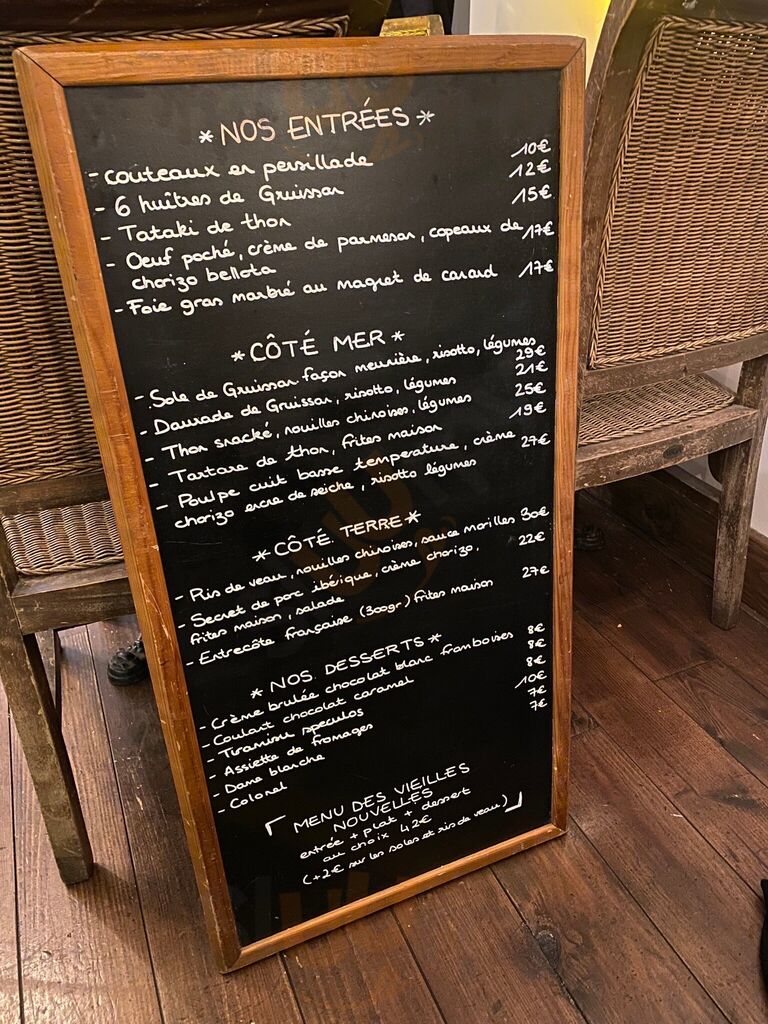 * NOS ENTRÉES *
- couteaux en persillade 10€
- 6 huîtres de Gruissan 12€
- Tataki de thon 15€
- Oeuf poché, crème de parmesan, copeaux de 17€
chorizo bellota
- Foie gras marbré au magret de canard 17€
* CÔTÉ MER *
- Sole de Gruissan façon meunière, risotto, légumes 29€
- Daurade de Gruissan, risotto, légumes 21€
- Thon snacké, nouilles chinoises, légumes 25€
- Tartare de thon, frites maison 19€
- Poulpe cuit basse temperature, crème 27€
chorizo encre de seiche, risotto légumes
* CÔTÉ TERRE *
- Ris de veau, nouilles chinoises, sauce morilles 30€
- Secret de porc ibérique, crème chorizo, 22€
frites maison, salade
- Entrecôte française (300gr) frites maison 27€
* NOS DESSERTS *
- Crème brulée chocolat blanc framboises 8€
- Coulant chocolat caramel 8€
- Tiramisu speculos 8€
- Assiette de fromages 10€
- Dame blanche 7€
- Colonel 7€
MENU DES VIEILLES
NOUVELLES
entrée + plat + dessert
au choix 42€
(+2€ sur les soles et ris de veau)